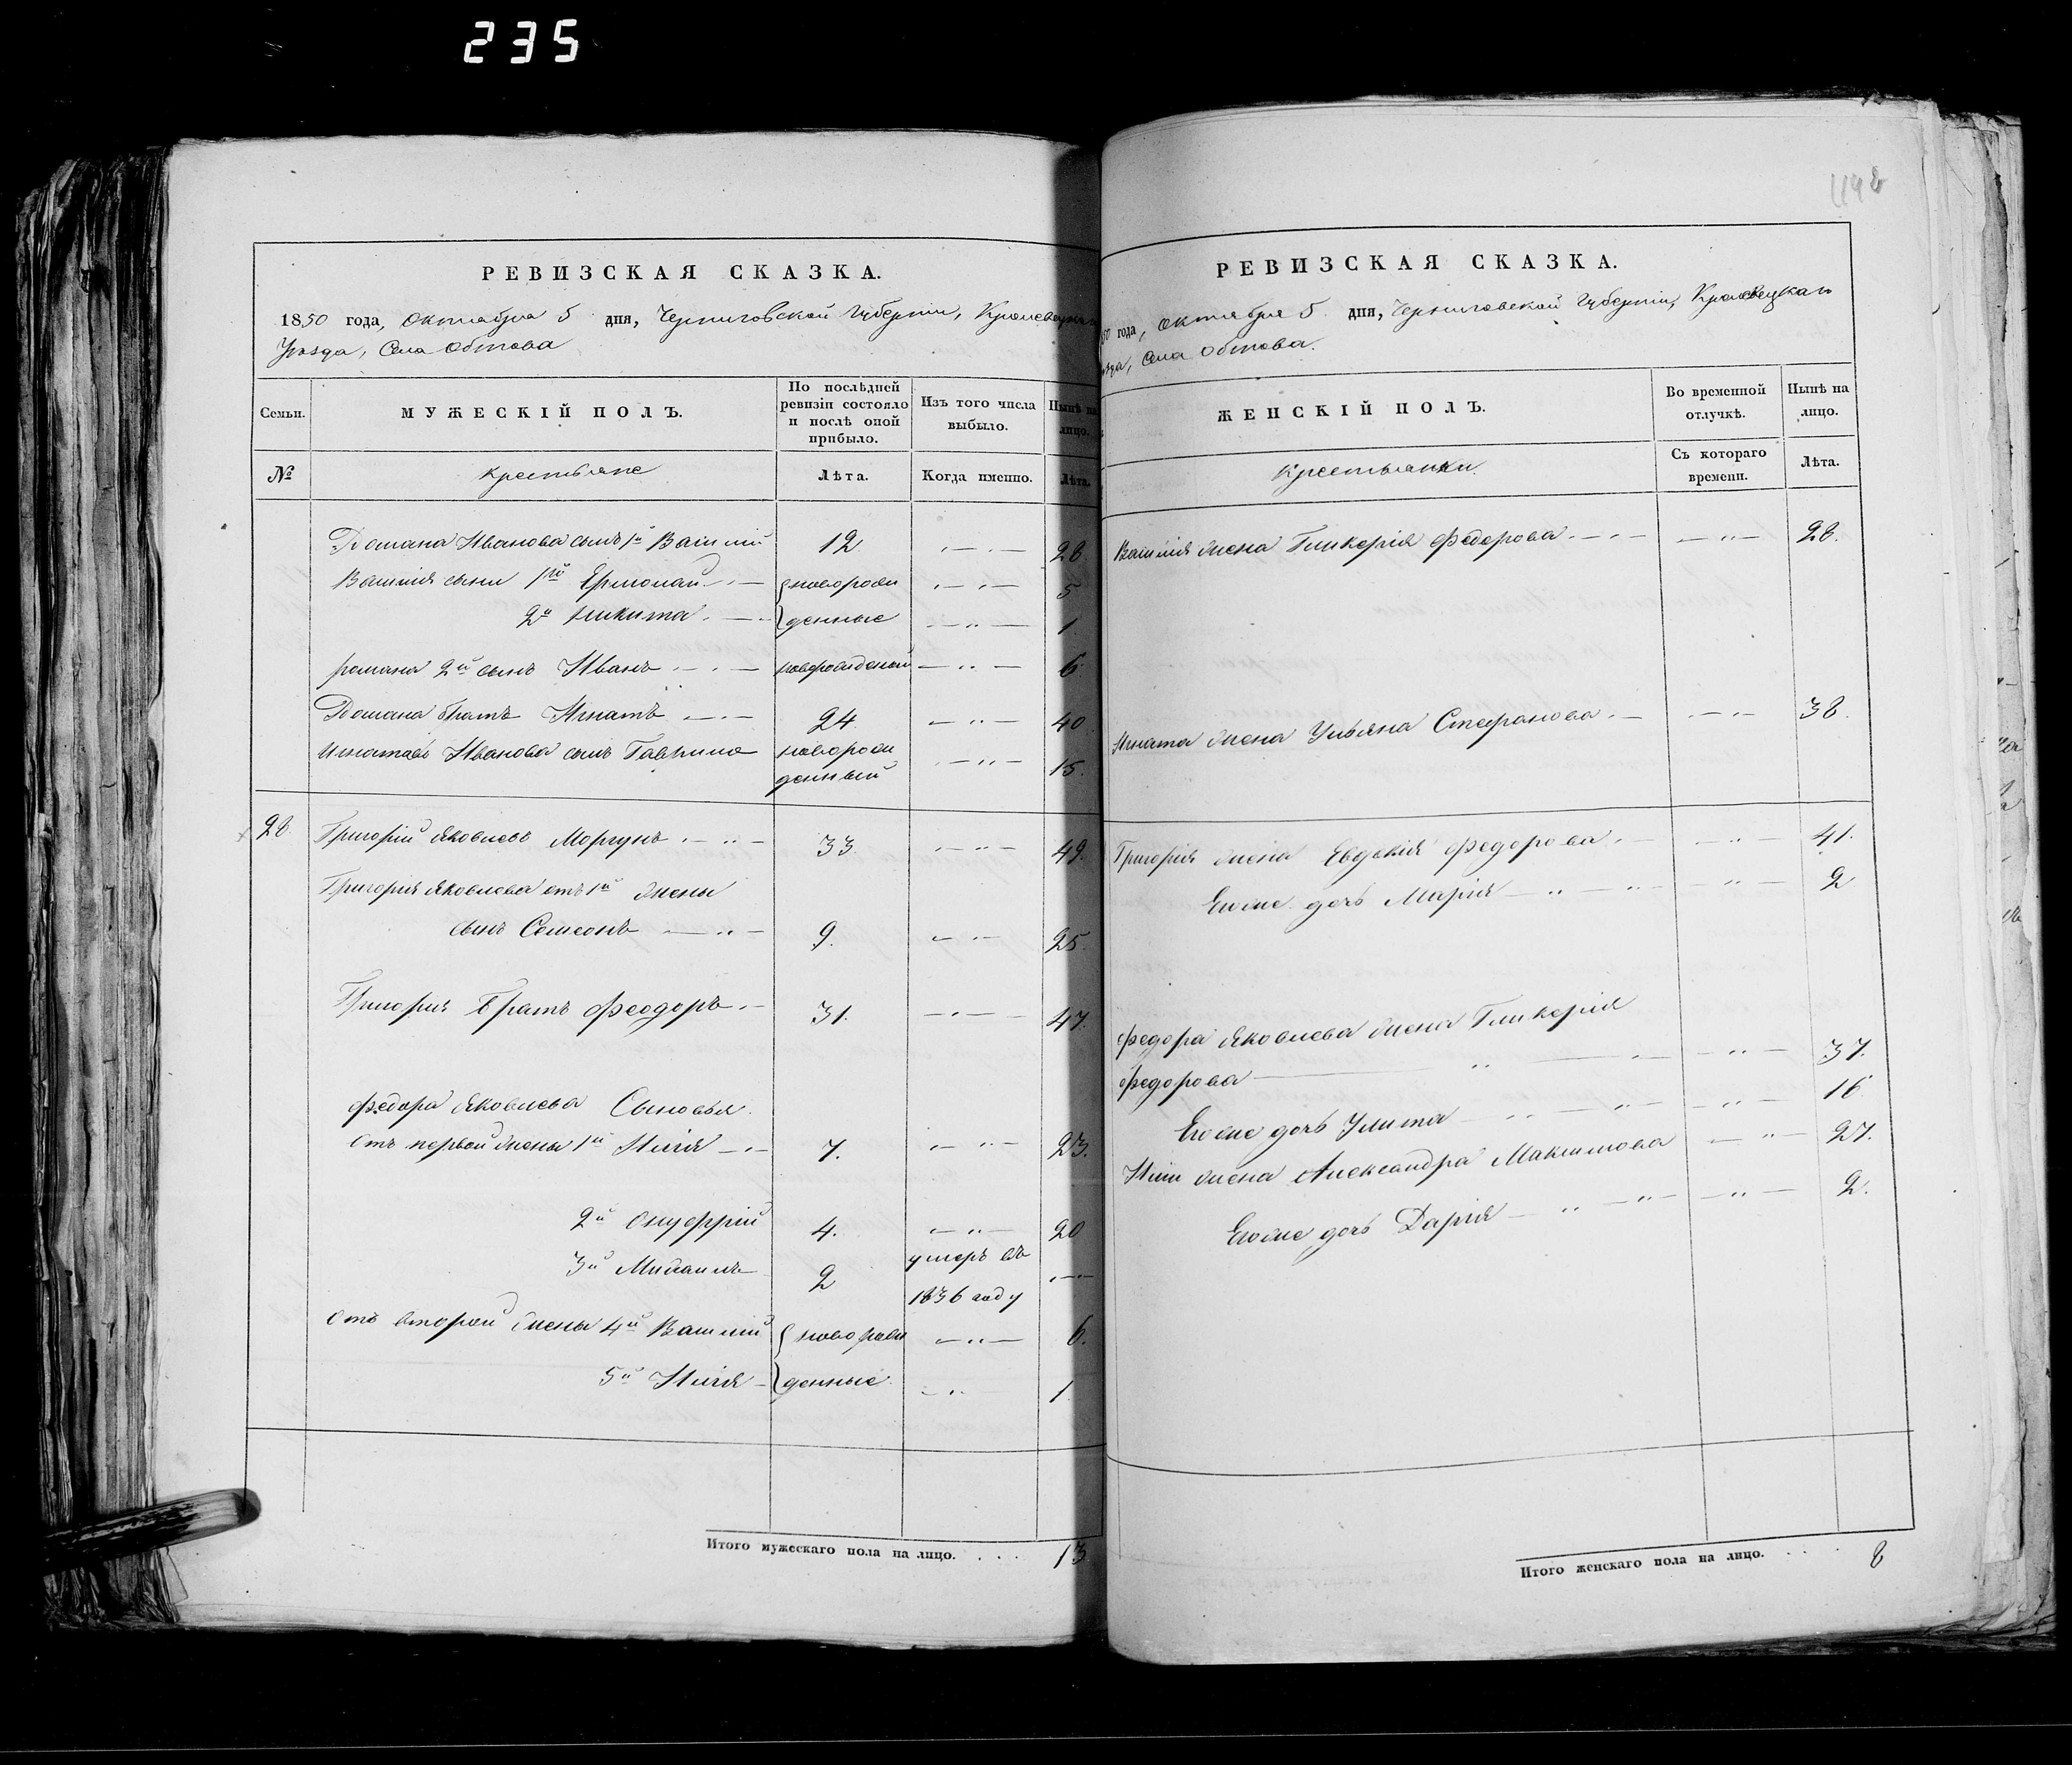 235
РЕВИЗСКАЯ СКАЗКА.
1850 года, Октября 5 дня, Черниговской Губерніи, Кролевецкаго
Уѣзда, Села Обтова
Семьи. МУЖЕСКІЙ ПОЛЪ. По послѣдней ревизіи состояло и послѣ оной прибыло. Изъ того числа выбыло. Нынѣ на лицо.
№ Крестьяне Лѣта. Когда именно. Лѣта.
Романа Иванова сынъ 1й Василій 12 28.
Василія сыны 1й Ермолай новорож 5
2й Никита денные 1.
Романа 2й сынъ Иванъ новорожденный 6.
Романа братъ Игнатъ 24 40
Игната Иванова сынъ Гаврило новорож 15.
денный
28. Григорій Яковлевъ Моргунъ 33. 49.
Григорія Яковлева отъ 1й жены
сынъ Семенъ 9. 25.
Григорія братъ Феодоръ 31. 47.
Федора Яковлева Сыновья
отъ первой жены 1й Илія 7. 23.
2й Онуфрій 4. 20
3й Михаилъ 2 умеръ въ
1836 году
Отъ второй жены 4й Василій новорож 6.
5й Илія денные 1.
Итого мужескаго пола на лицо. . . . 13
1148
РЕВИЗСКАЯ СКАЗКА.
50 года, Октября 5 дня, Черниговской Губерніи, Кролевецкаго
Села Обтова.
ЖЕНСКІЙ ПОЛЪ. Во временной отлучкѣ. Нынѣ на лицо.
Крестьянки. Съ котораго времени. Лѣта.
Василія жена Гликерія Федорова 28.
Игната жена Ульяна Стефанова 38.
Григорія жена Евдокія Федорова 41.
Егоже дочь Марія 2
Федора Яковлева жена Гликерія
Федорова 37.
Егоже дочь Улита 16
Иліи жена Александра Максимова 27.
Егоже дочь Дарія 2.
Итого женскаго пола на лицо. . . . 8